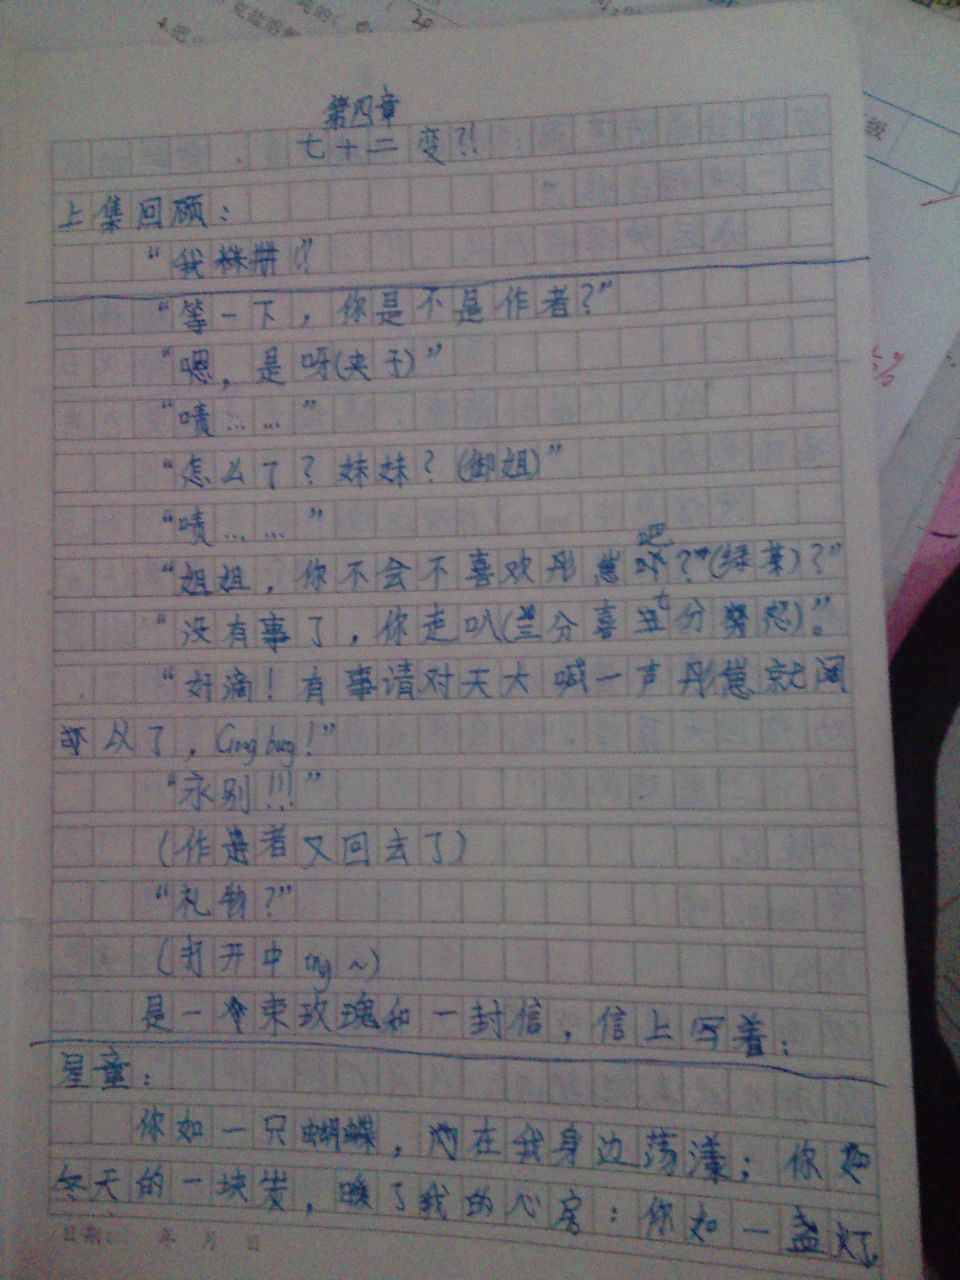 第四章
七十二变?!
上集回顾：
“我
“等一下，你是不是作者？”
“嗯，是呀(夹子)”
“啧……”
“怎么了？妹妹？(御姐)”
“啧……”
“姐姐，你不会不喜欢彤崽吧？”(绿茶)？”
“没有事了，你走叭(兰分喜七分努怒)。”
“好滴！有事请对天大喊一声彤崽就阔
以了，
“永别!!!”
(作者又回去了)
“礼物？”
(打开中ing～)
是一束玫瑰和一封信，信上写着：
星童：
你如一只蝴蝶，在我身边荡漾；你如
冬天的一块炭，暖了我的心房：你如一盏灯，
日期： 年 月 日
级